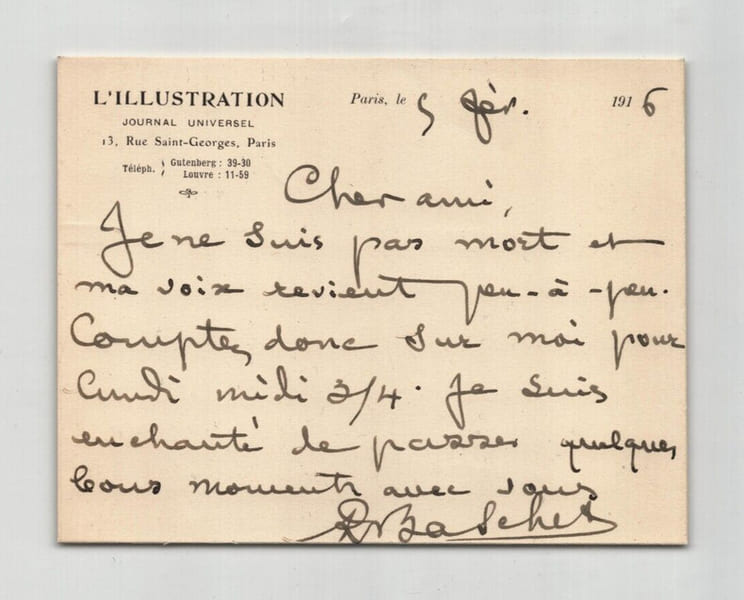 L'ILLUSTRATION
JOURNAL UNIVERSEL
13, Rue Saint-Georges, Paris
Téléph. Gutenberg : 39-30
Louvre : 11-59
Paris, le 5 fév. 1916
Cher ami,
Je ne suis pas mort et
ma voix revient peu-à-peu.
Comptez donc sur moi pour
lundi midi 3/4. Je suis
enchanté de passer quelques
bons moments avec vous
R Baschet